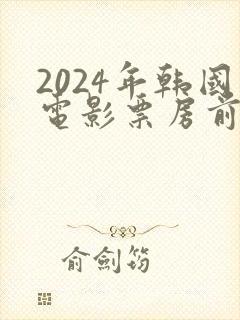 2024年韩國
電影票房前
俞劍筠